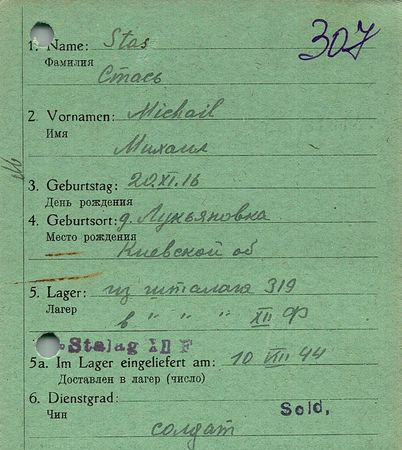 307
1. Name: Stas
Фамилия
Стась
2. Vornamen: Michail
Имя
Михаил
3. Geburtstag: 20.XI.16
День рождения
4. Geburtsort: д. Лукьяновка
Место рождения
Киевской об
5. Lager: из шталага 319
Лагер
в " " " XII Ф
Stalag XII F
5a. Im Lager eingeliefert am: 10 VIII 44
Доставлен в лагер (число)
6. Dienstgrad: Sold.
Чин
солдат